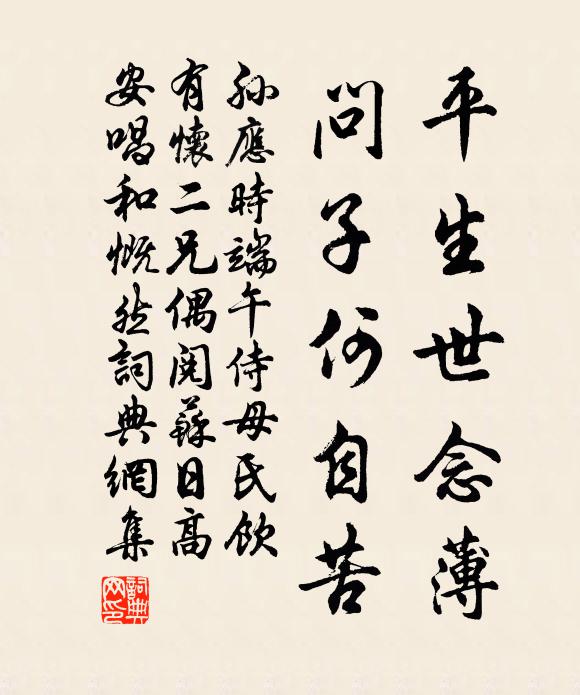 平生世念薄
問子何自苦
孫應時端午侍母氏飲
有懷二兄偶閱蘇日高
安唱和慨然詞典網集
詞典
网印